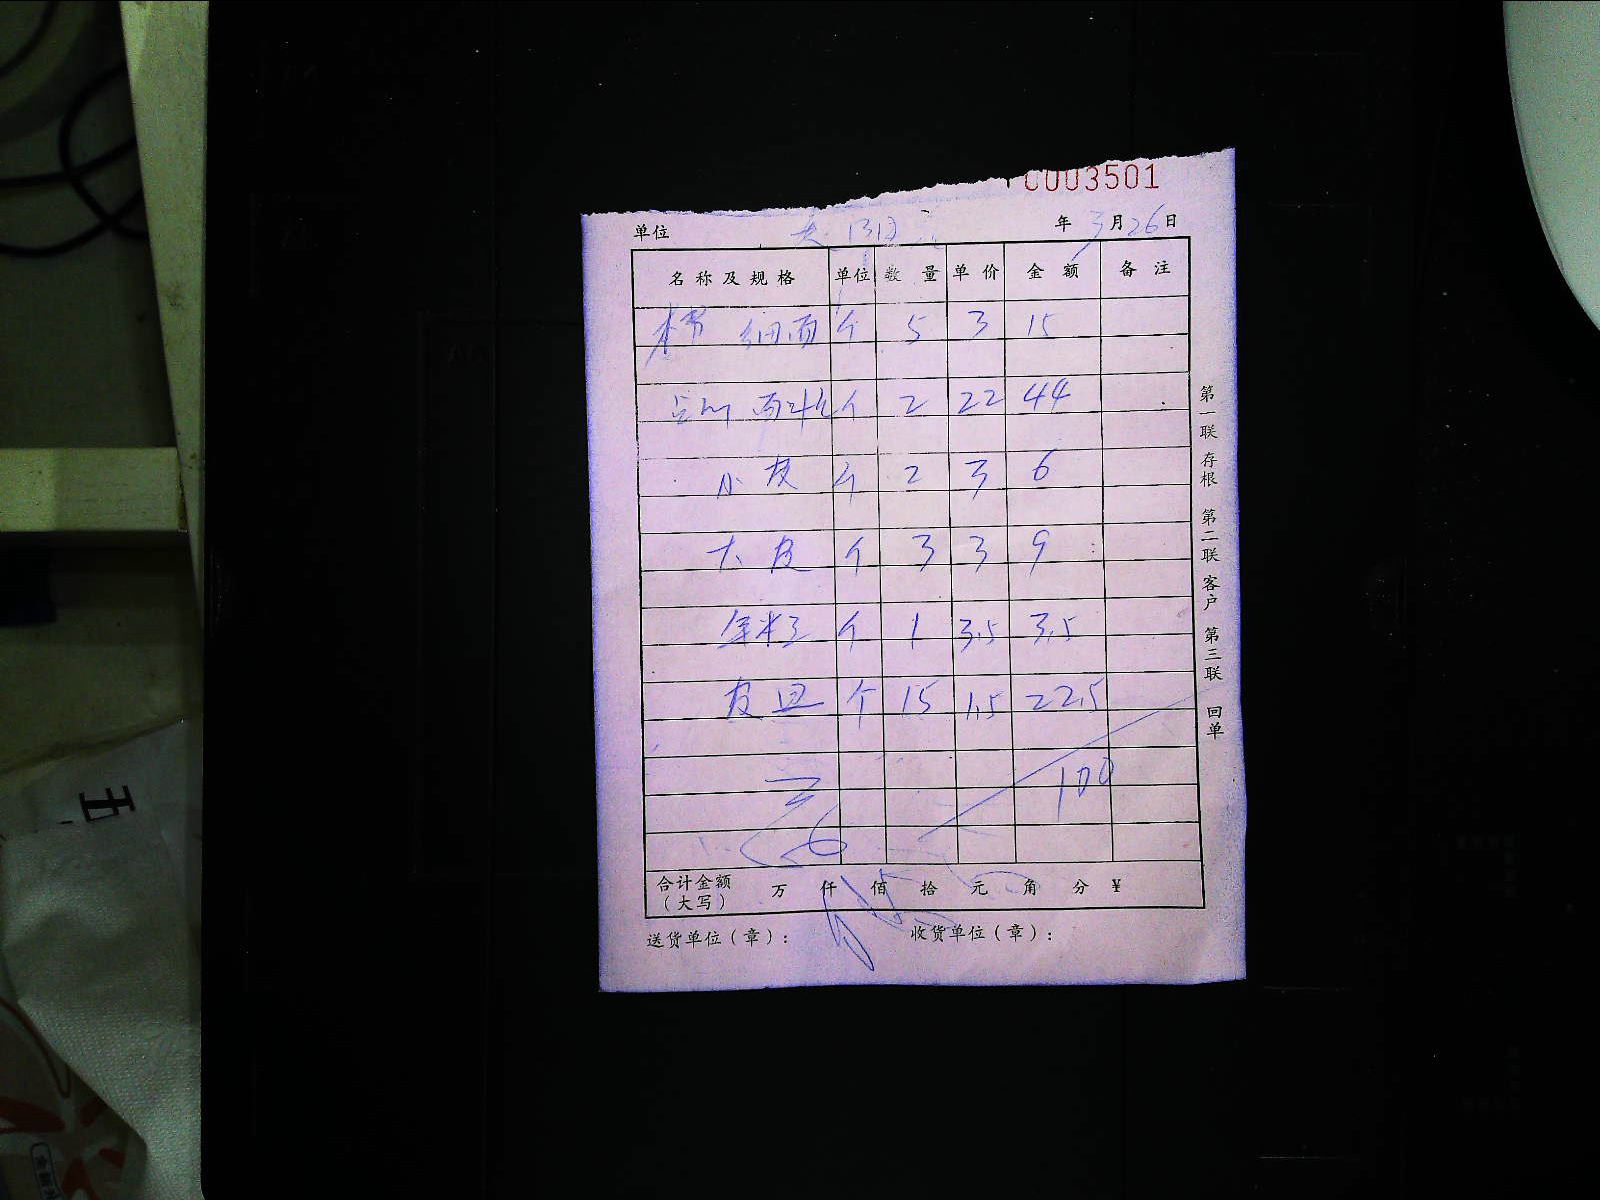 C003501
单位 年 3月26日
名称及规格 单位 数量 单价 金额 备注
细面 个 5 3 15
个 2 22 44
小皮 个 2 3 6
大皮 个 3 3 9
个 1 3.5 3.5
皮旦 个 15 1.5 22.5
100
合计金额 万 仟 佰 拾 元 角 分 ¥
（大写）
送货单位（章）： 收货单位（章）：
第一联 存根 第二联 客户 第三联 回单
五